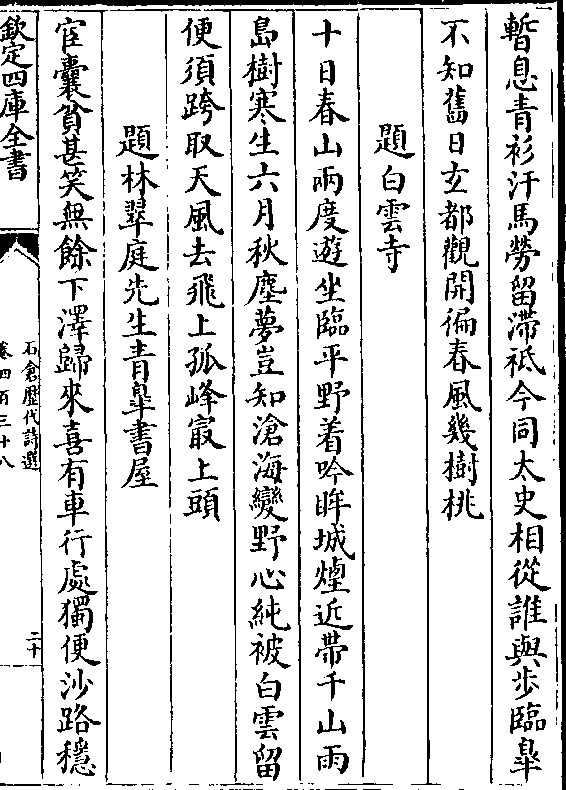 暫息青衫汗馬勞留滯祗今同太史相從誰與步臨臯
不知舊日玄都觀開徧春風幾樹桃
題白雲寺
十日春山兩度遊坐臨平野着吟眸城煙近帶千山雨
島樹寒生六月秋塵夢豈知滄海變野心純被白雲留
便須跨取天風去飛上孤峰㝡上頭
題林翠庭先生青臯書屋
宦囊貧甚笑無餘下澤歸來喜有車行處獨便沙路穩
欽定四庫全書
石倉歷代詩選
卷四百三十八
二十